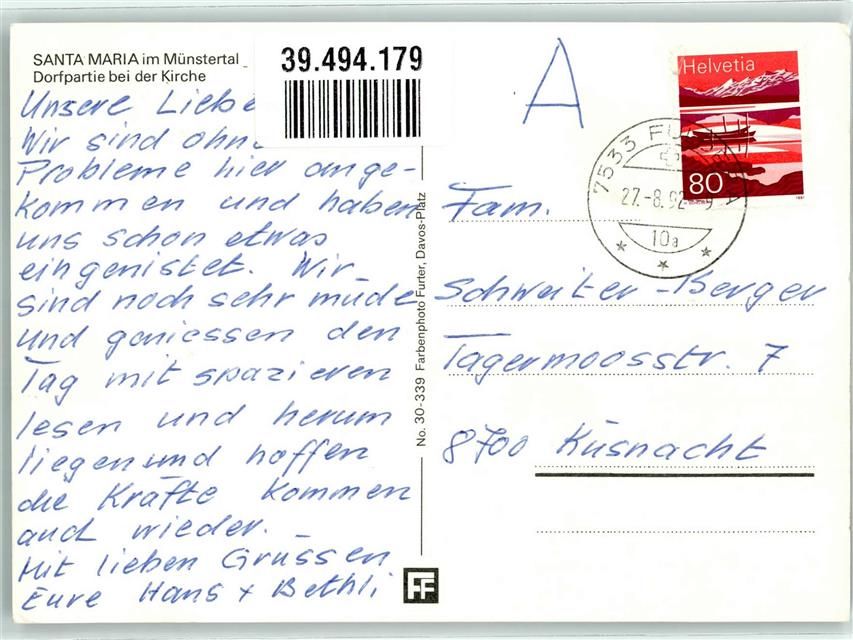 SANTA MARIA im Münstertal
Dorfpartie bei der Kirche
39.494.179
Unsere Liebe
Wir sind ohne
Probleme hier ange-
kommen und haben
uns schon etwas
eingenistet. Wir
sind noch sehr müde
und geniessen den
Tag mit spazieren
lesen und herum
liegen und hoffen
die Kräfte kommen
auch wieder.
Mit lieben Grüssen
Eure Hans + Bethli
No. 30-339 Farbenphoto Furter, Davos-Platz
FF
A
Helvetia
80
7533
27.-8.92-9
10a
Fam.
Schweiter-Berger
Tägermoosstr. 7
8700 Küsnacht